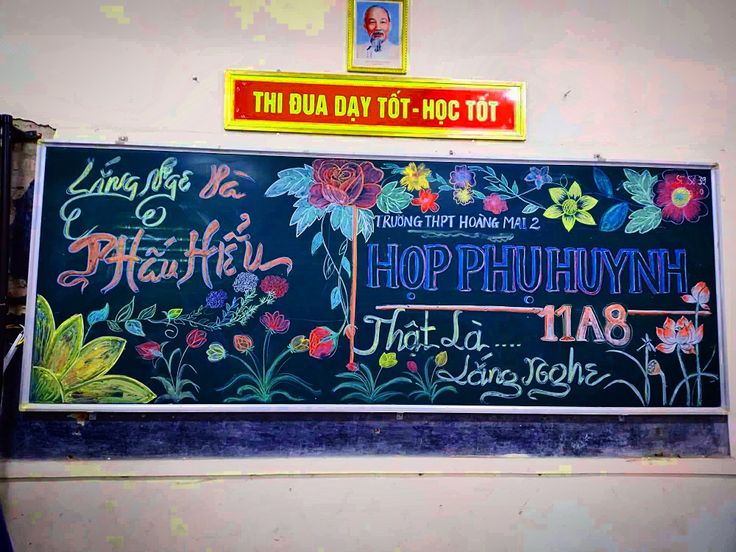 THI ĐUA DẠY TỐT - HỌC TỐT
Lắng Nge Và
PHẤU HIỂU
TRƯỜNG THPT HOÀNG MAI 2
HỌP PHỤ HUYNH
11A8
Thật Là ....
Lắng Nghe